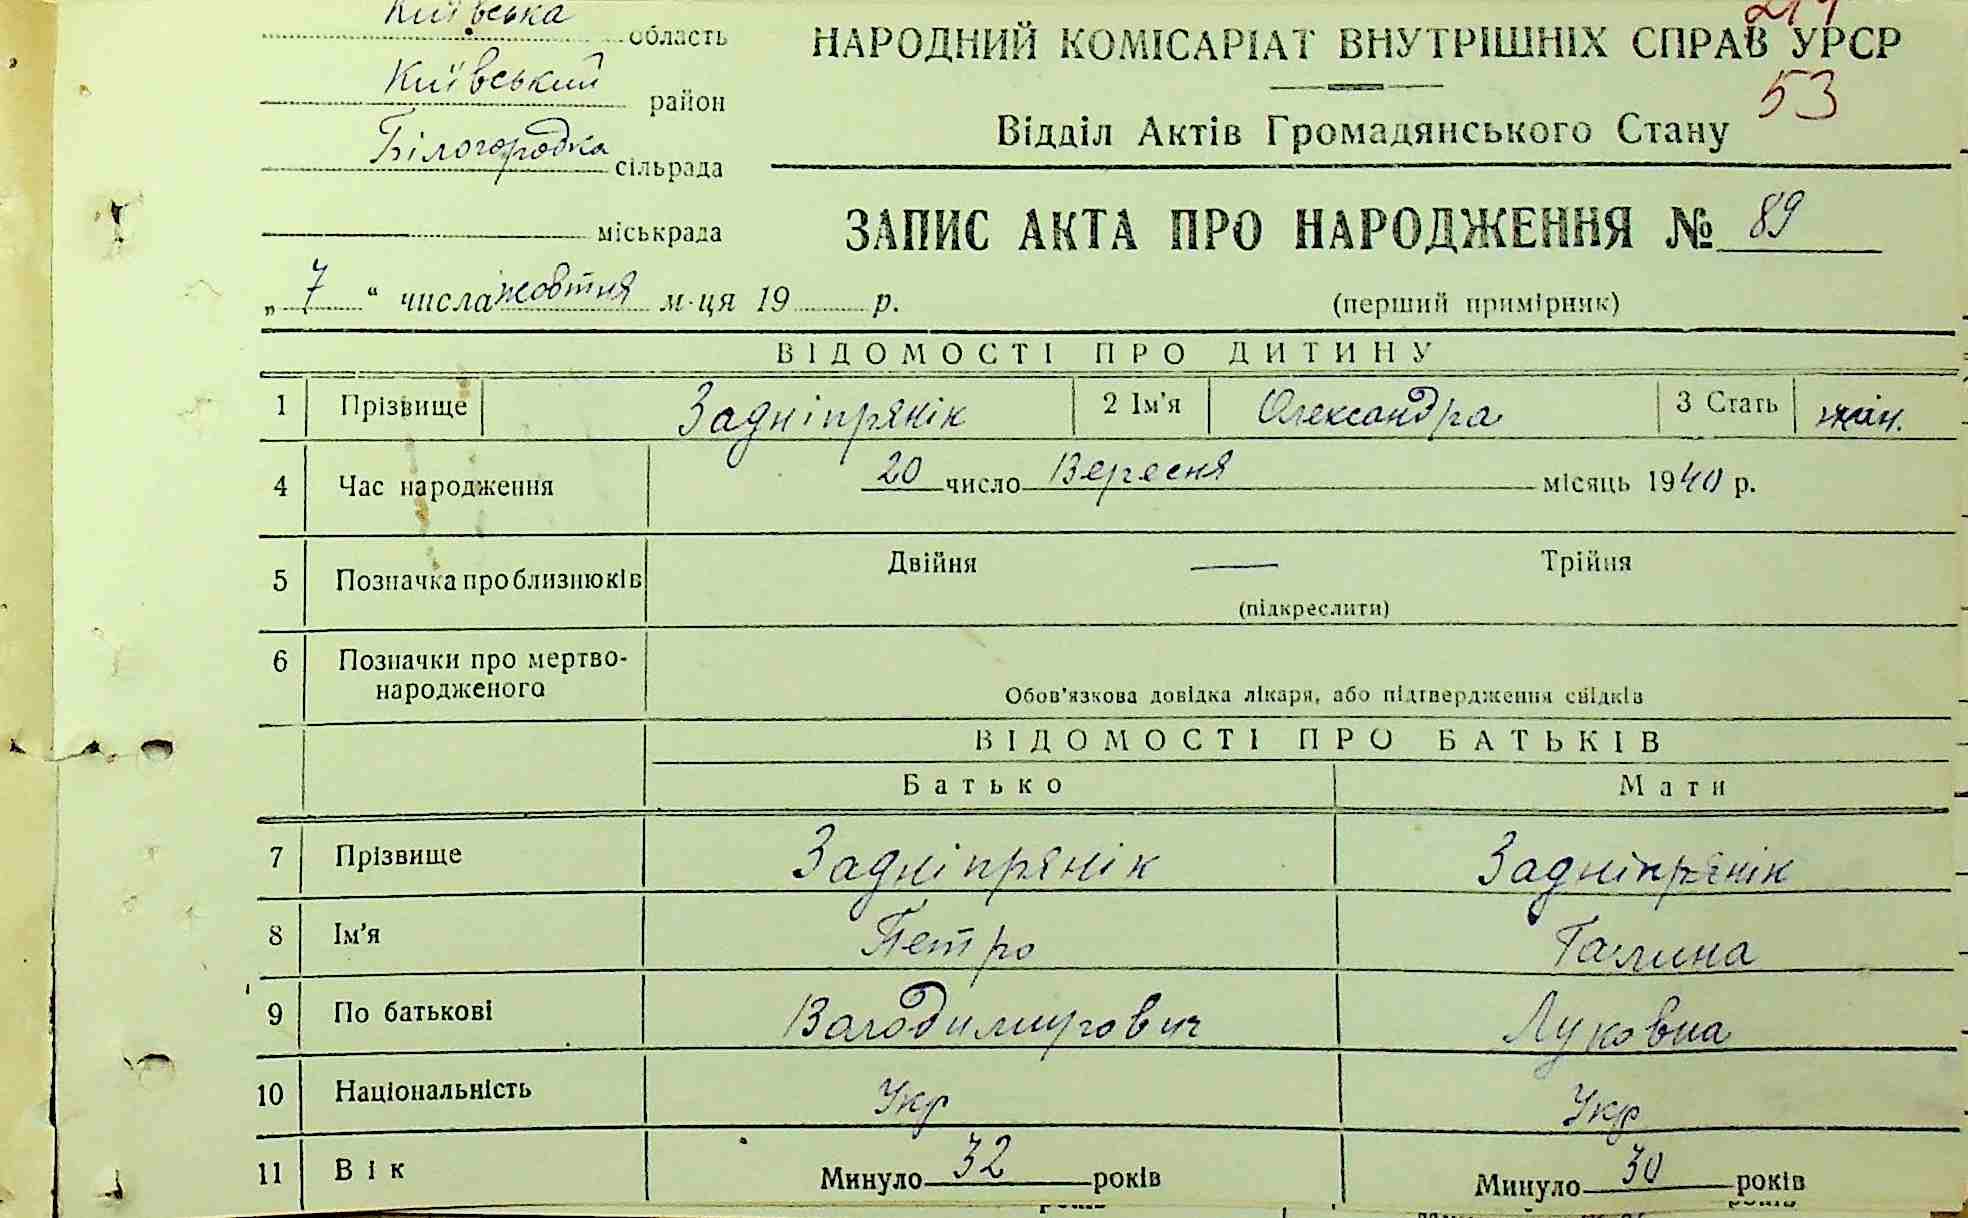 Київська область
Київський район
Білогородка сільрада
міськрада
„ 7 “ числа жовтня м-ця 19 р.
НАРОДНИЙ КОМІСАРІАТ ВНУТРІШНІХ СПРАВ УРСР
53
Відділ Актів Громадянського Стану
ЗАПИС АКТА ПРО НАРОДЖЕННЯ № 89
(перший примірник)
ВІДОМОСТІ ПРО ДИТИНУ
1 Прізвище Задніпрянік 2 Ім'я Олександра 3 Стать жін.
4 Час народження 20 число Вересня місяць 1940 р.
5 Позначка про близнюків Двійня — Трійня
(підкреслити)
6 Позначки про мертво-
народженого
Обов'язкова довідка лікаря, або підтвердження свідків
ВІДОМОСТІ ПРО БАТЬКІВ
Батько Мати
7 Прізвище Задніпрянік Задніпрянік
8 Ім'я Петро Галина
9 По батькові Володимирович Луковна
10 Національність Укр Укр
11 Вік Минуло 32 років Минуло 30 років